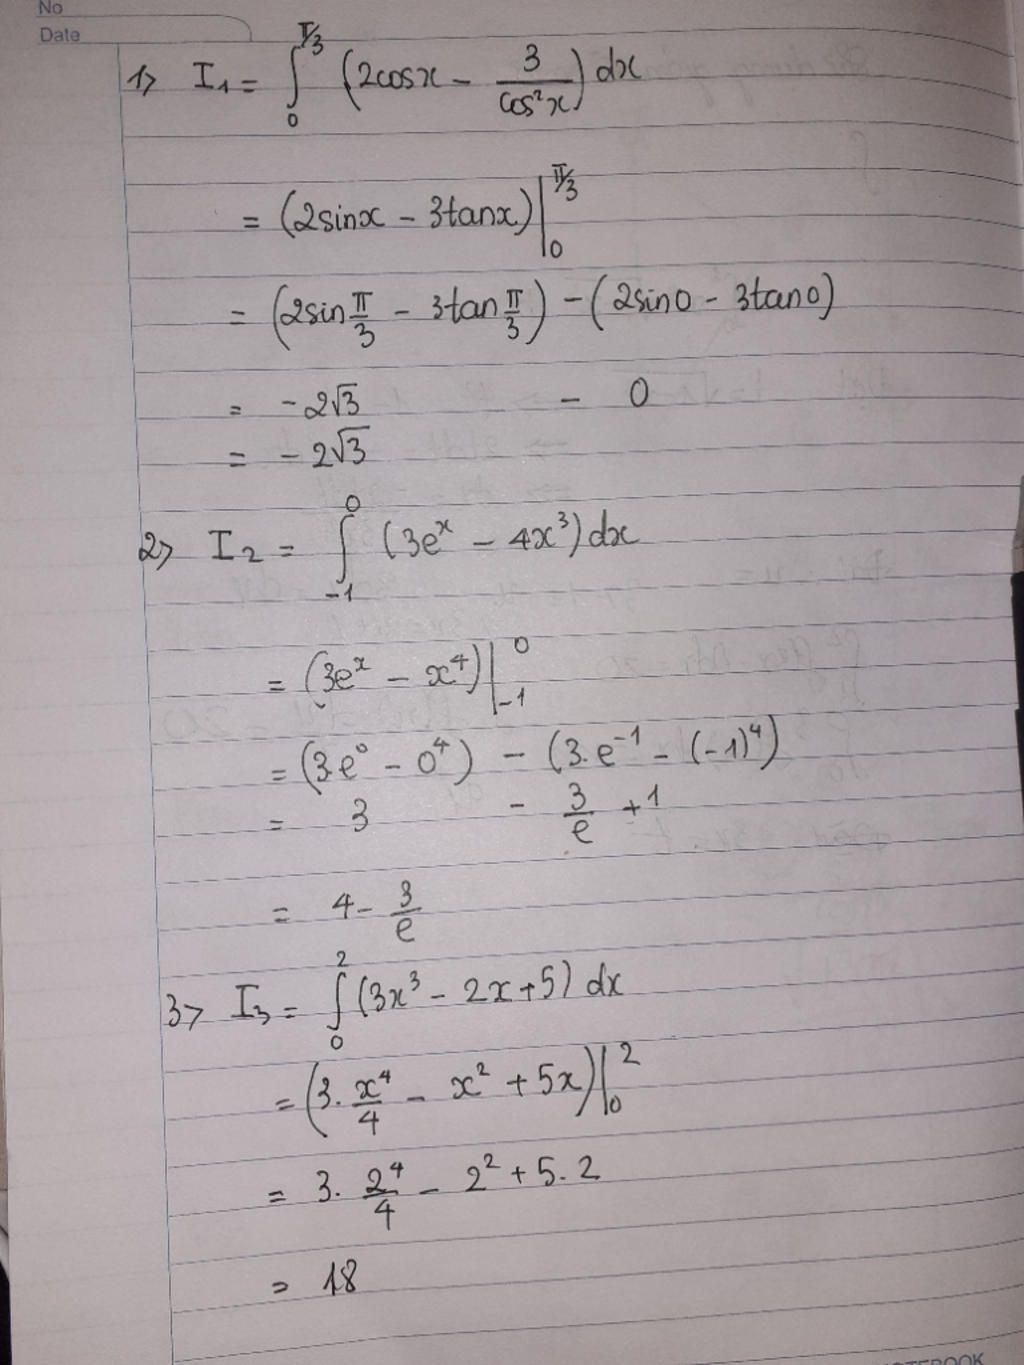 No
Date
1> I₁ = ∫₀^{π/3} (2cosx - 3/cos²x) dx
= (2sinx - 3tanx) |₀^{π/3}
= (2sin π/3 - 3tan π/3) - (2sin0 - 3tan0)
= -2√3 - 0
= -2√3
2> I₂ = ∫₋₁⁰ (3eˣ - 4x³) dx
= (3eˣ - x⁴) |₋₁⁰
= (3.e⁰ - 0⁴) - (3.e⁻¹ - (-1)⁴)
= 3 - 3/e + 1
= 4 - 3/e
3> I₃ = ∫₀² (3x³ - 2x + 5) dx
= (3. x⁴/4 - x² + 5x) |₀²
= 3. 2⁴/4 - 2² + 5.2
= 18